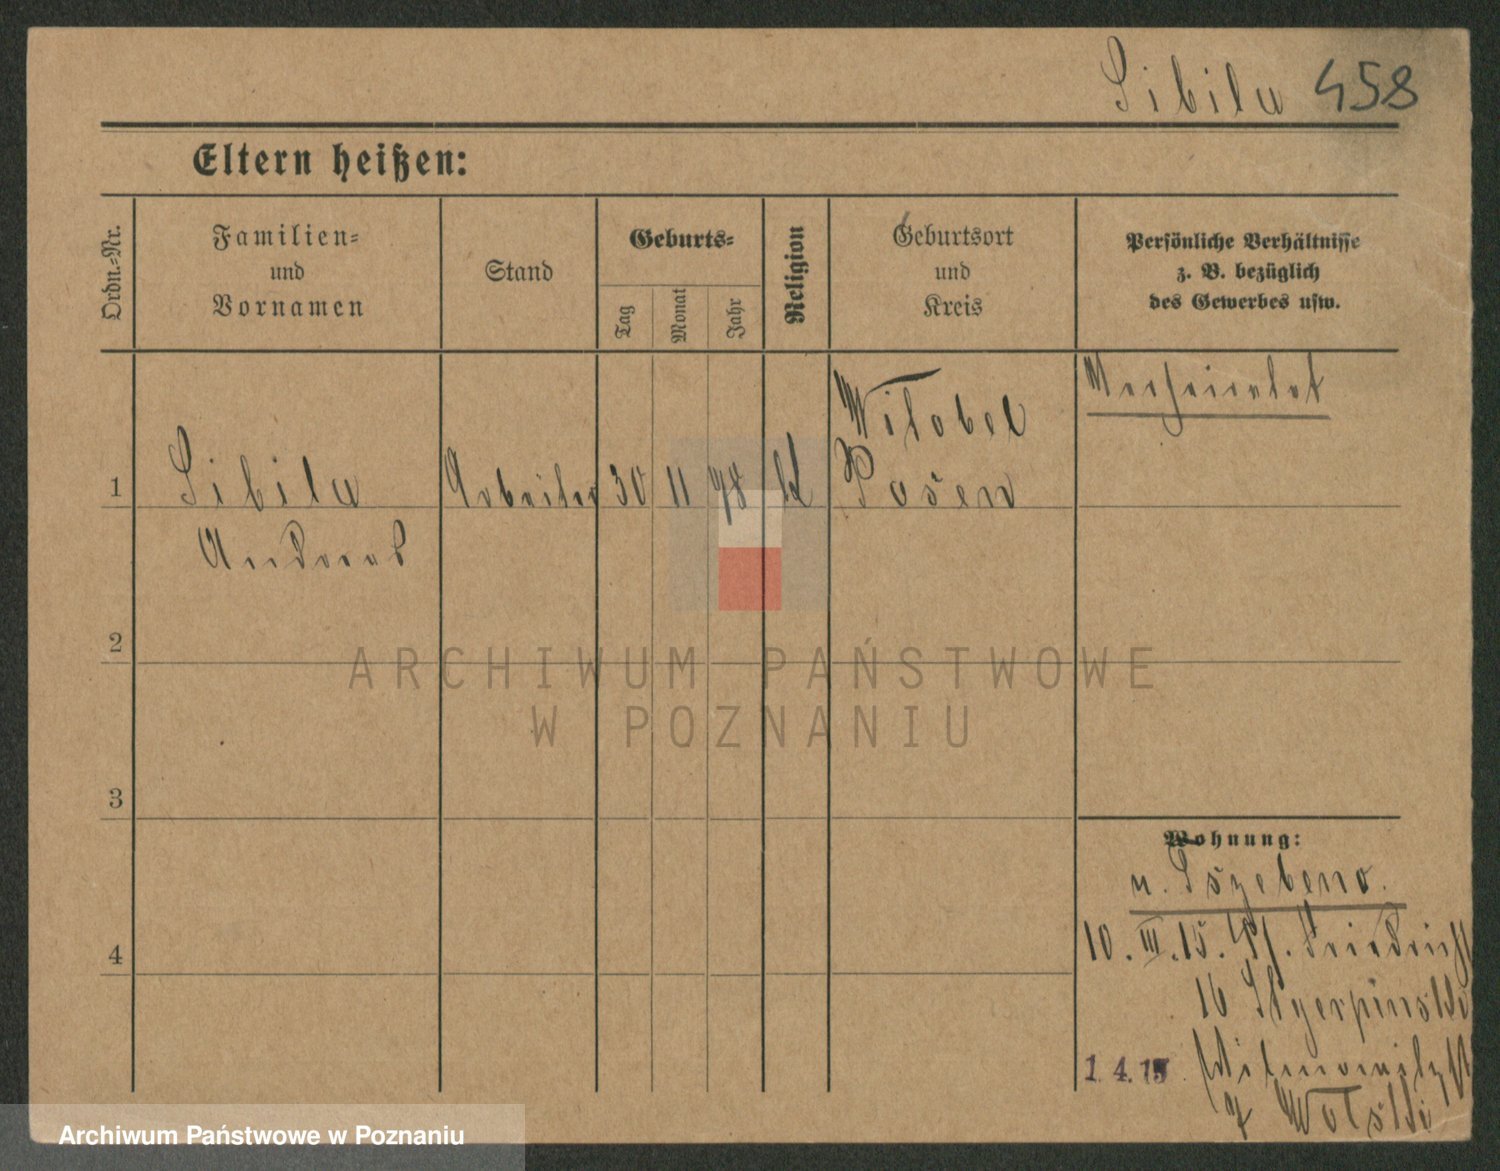 Sibila 458
Eltern heißen:
Ordn.-Nr.
Familien-
und
Vornamen
Stand
Geburts-
Tag
Monat
Jahr
Religion
Geburtsort
und
Kreis
Persönliche Verhältnisse
z. B. bezüglich
des Gewerbes usw.
Verheiratet
Witobel
1 Sibila Arbeiter 30 11 98 k Posen
Andreas
2
3
4
Wohnung:
10. III. 15.
16
1. 4. 15
ARCHIWUM PAŃSTWOWE
W POZNANIU
Archiwum Państwowe w Poznaniu